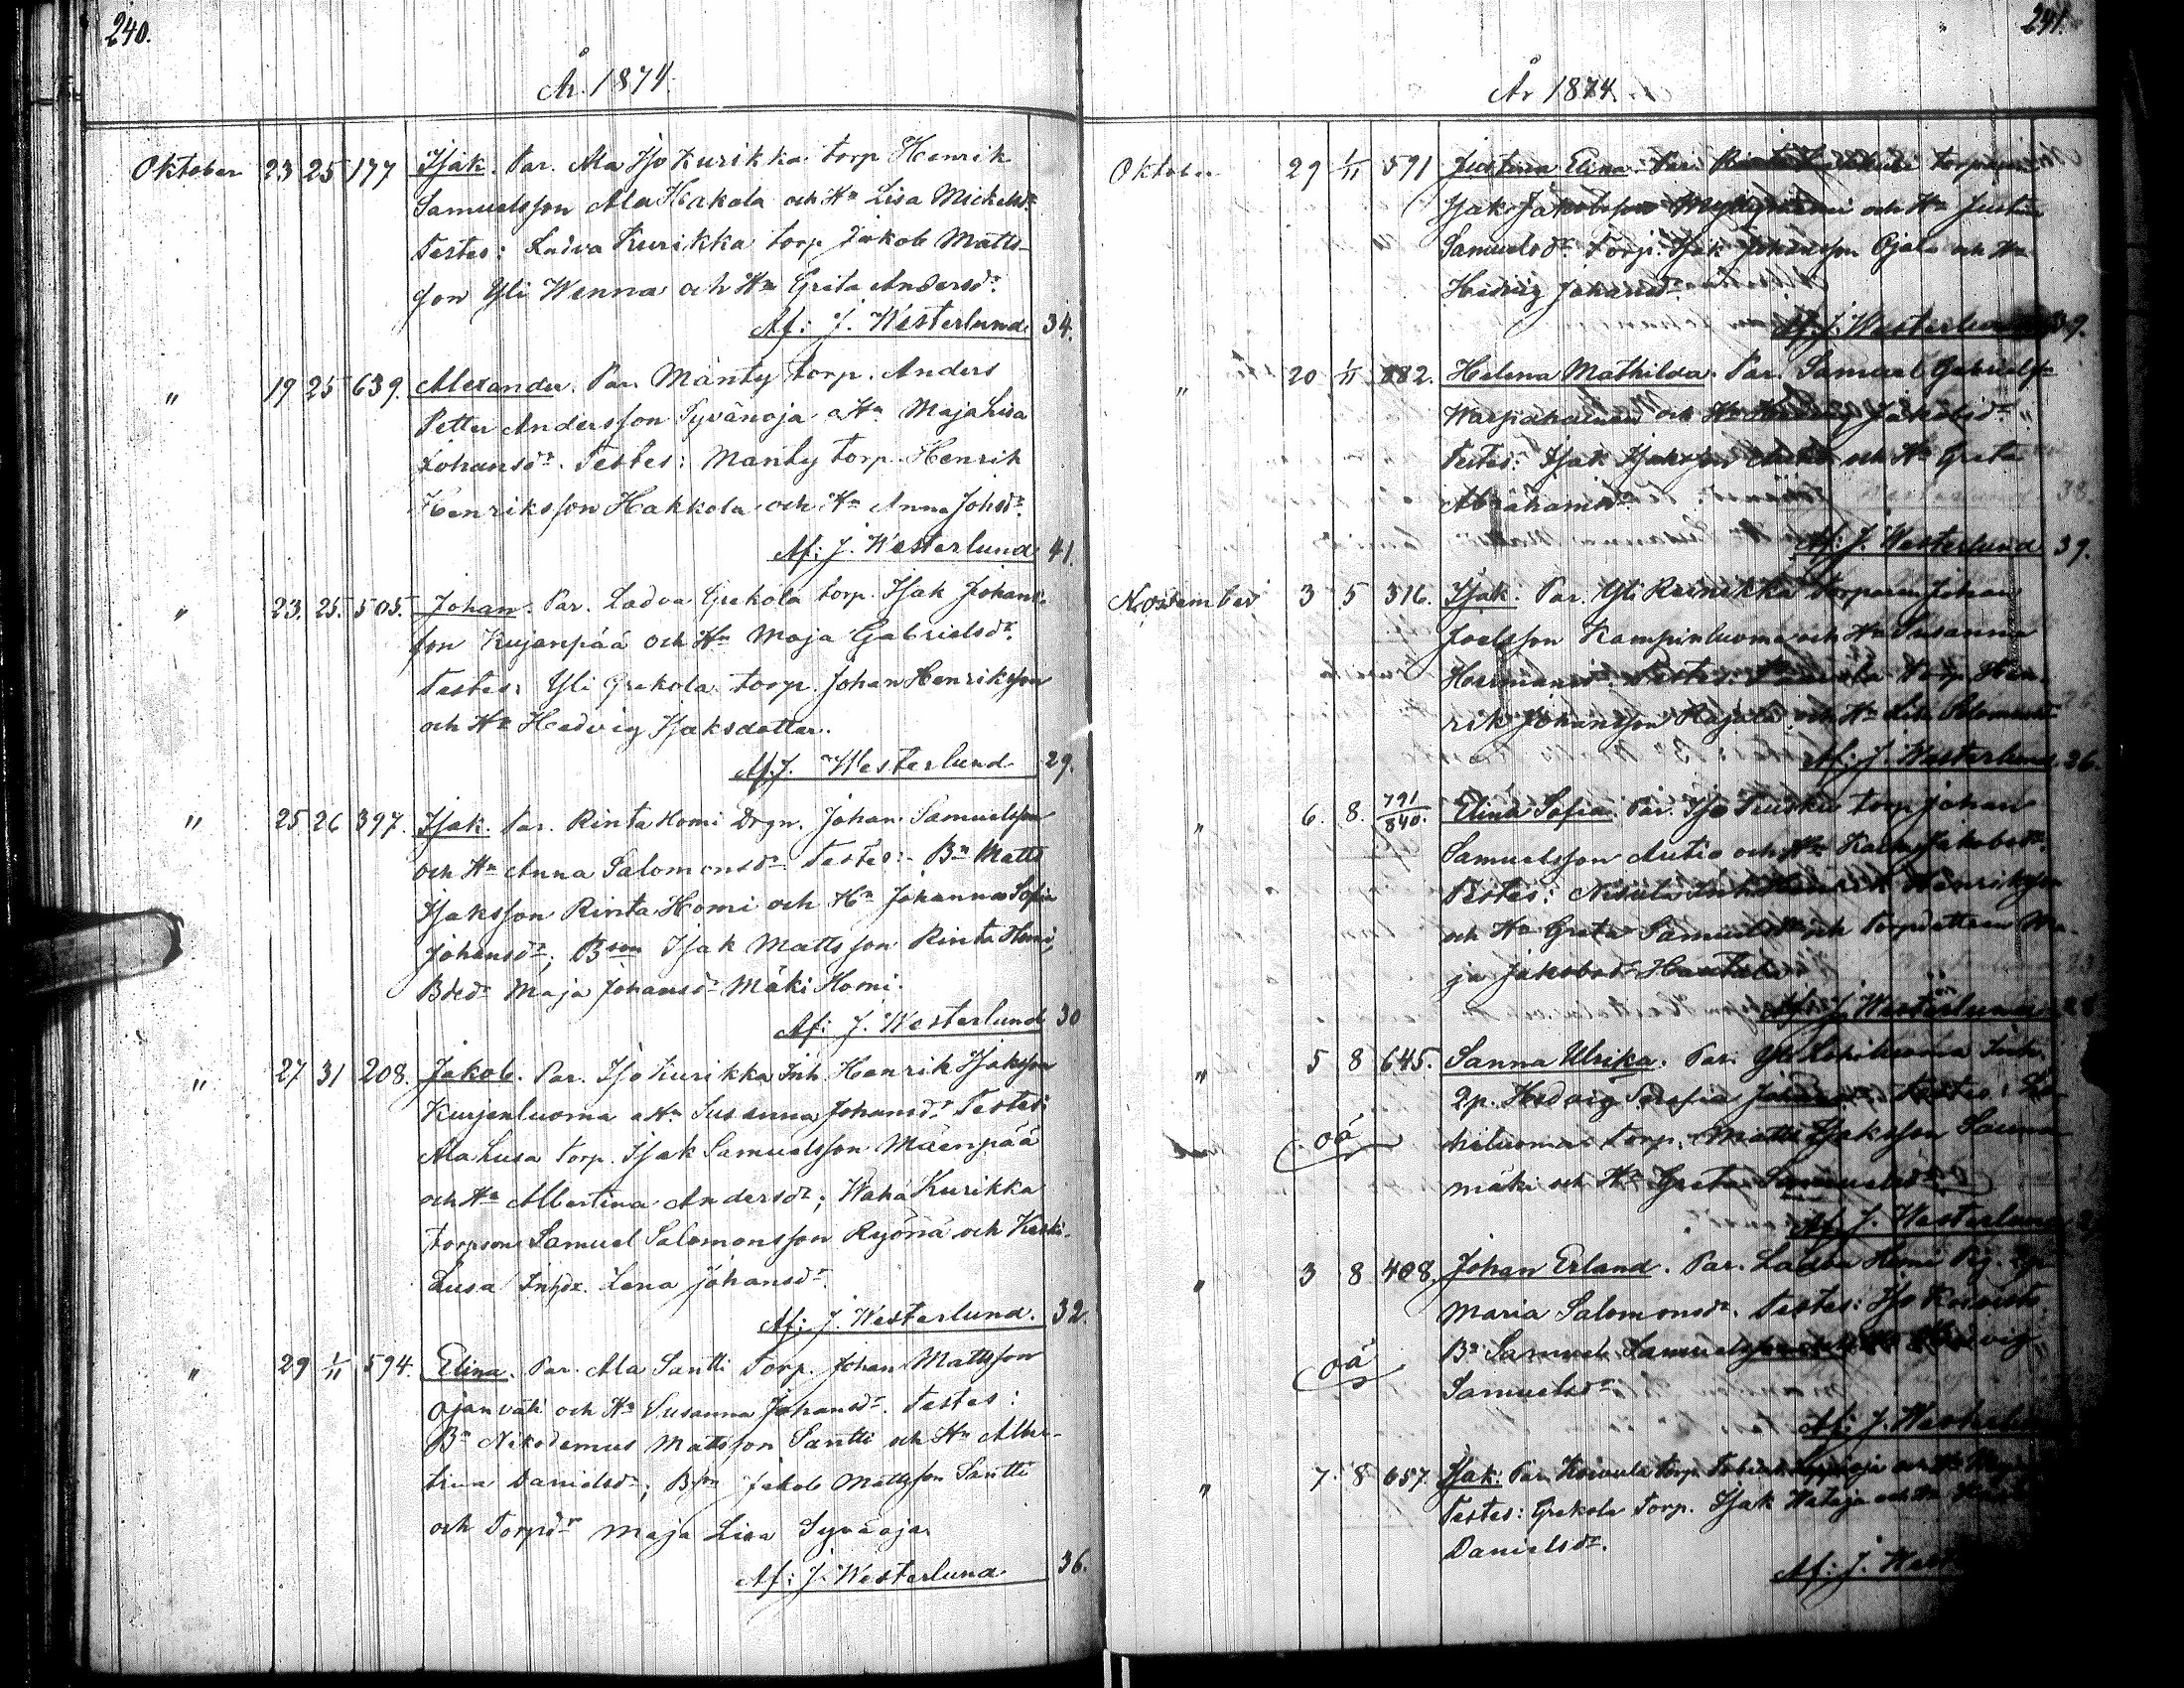 240.
År 1874.
Oktober 23 25 177 Isak. Par. Ala Iso Kurikka torp Henrik
Samuelsson Ala Hakala och Hu Lisa Mickelsdr.
Testes: Ladva Kurikka torp Jakob Matts-
son Yli Wenna och Hu Greta Andersdr.
Af: J. Westerlund 34.
" 19 25 639. Alexander. Par. Mänty torp. Anders
Petter Andersson Syvänoja o Hu Maja Lisa
Johansdr. Testes: Mänty torp. Henrik
Henriksson Hakkola och Hu Anna Johsdr.
Af: J. Westerlund 41.
" 23. 25. 505. Johan. Par. Ladva Grekola torp. Isak Johans-
son Kujanpää och Hu Maja Gabrielsdr.
Testes: Yli Grekola torp. Johan Henriksson
och Hu Hedvig Isaksdotter.
Af. J. Westerlund 29.
" 25 26 397. Isak. Par. Rinta Homi Drgn. Johan Samuelsson
och Hu Anna Salomonsdr. Testes: Bn Matts
Isaksson Rinta Homi och Hu Johanna Sofia
Johansdr; Bson Isak Mattsson Rinta Homi,
Bdr Maja Johansdr Mäki Homi.
Af: J. Westerlund 30
" 27 31 208. Jakob. Par. Iso Kurikka Inh. Henrik Isaksson
Kurjenluoma o Hu Susanna Johansdr. Testes:
Ala Lusa torp. Isak Samuelsson Mäenpää
och Hu Albertina Andersdr; Waha Kurikka
torpson Samuel Salomonsson Ryönä och Keski-
Lusa Inhdr. Lena Johansdr.
Af: J. Westerlund. 32.
" 29 1/11 594. Elina. Par. Ala Santti Torp. Johan Mattsson
Ojanväli och Hu Susanna Johansdr. Testes:
Bn Nikodemus Mattsson Santti och Hu Alber-
tina Danielsdr; Bson Jakob Mattsson Santti
och Torpdr Maja Lisa Syväoja
Af: J. Westerlund 36.
241.
År 1874.
Oktober 29 1/11 591 Justina Elina. Par. torparen
Isak Jakobsson och Hu Justina
Samuelsdr. Torp. Isak Johansson Ojala och Hu
Hedvig Johansdr.
Af: J. Westerlund 39.
" 20 1/11 882. Helena Mathilda. Par. Samuel Gabrielsson
och Hu Hedvig Jakobsdr.
Testes: Isak Isaksson och Hu Greta
Abrahamsdr.
Af: J. Westerlund 39.
November 3 5 316. Isak. Par. Yli Reinikka Torparen Johan
Joelsson Kampinluoma och Hu Susanna
Hermansdr. Testes: Torp. Hen-
rik Johansson Rajala och Hu Lisa Salomonsdr
Af: J. Westerlund 36.
" 6. 8. 791/840. Elina Sofia. Par. Iso Tuisku torp Johan
Samuelsson Autio och Hu Jakobsdr.
Testes: Inh Henrik Henriksson
och Hu Greta Samuelsdr och Torpdottren Ma-
ja Jakobsdr Hautala
Af: J. Westerlund 28
" 5 8 645. Sanna Ulrika. Par. Yli Lohiluoma Inh.
Qp. Hedvig Testes: Lo-
hiluoma torp. Matts Isaksson Sauna-
mäki och Hu Greta Samuelsdr
oä
Af: J. Westerlund
" 3 8 408. Johan Erland. Par. Ladva Homi Pig. Qp
Maria Salomonsdr. Testes: Iso Koivisto
Bn Samuel Samuelsson och Hu Hedvig
oä Samuelsdr.
Af: J. Westerlund
" 7. 8 657. Isak. Par. Koivula torp. Tobias
Testes: Grekola Torp. Isak Hataja och Hu
Danielsdr.
Af: J. West